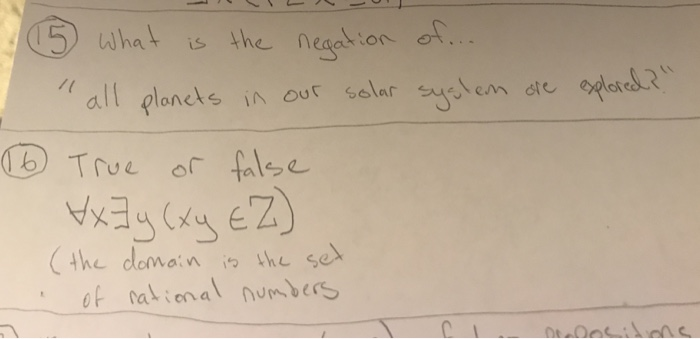 15 What is the negation of...
"all planets in our solar system are explored?"
16 True or false
∀x∃y(xy ∈ Z)
(the domain is the set
of rational numbers
propositions